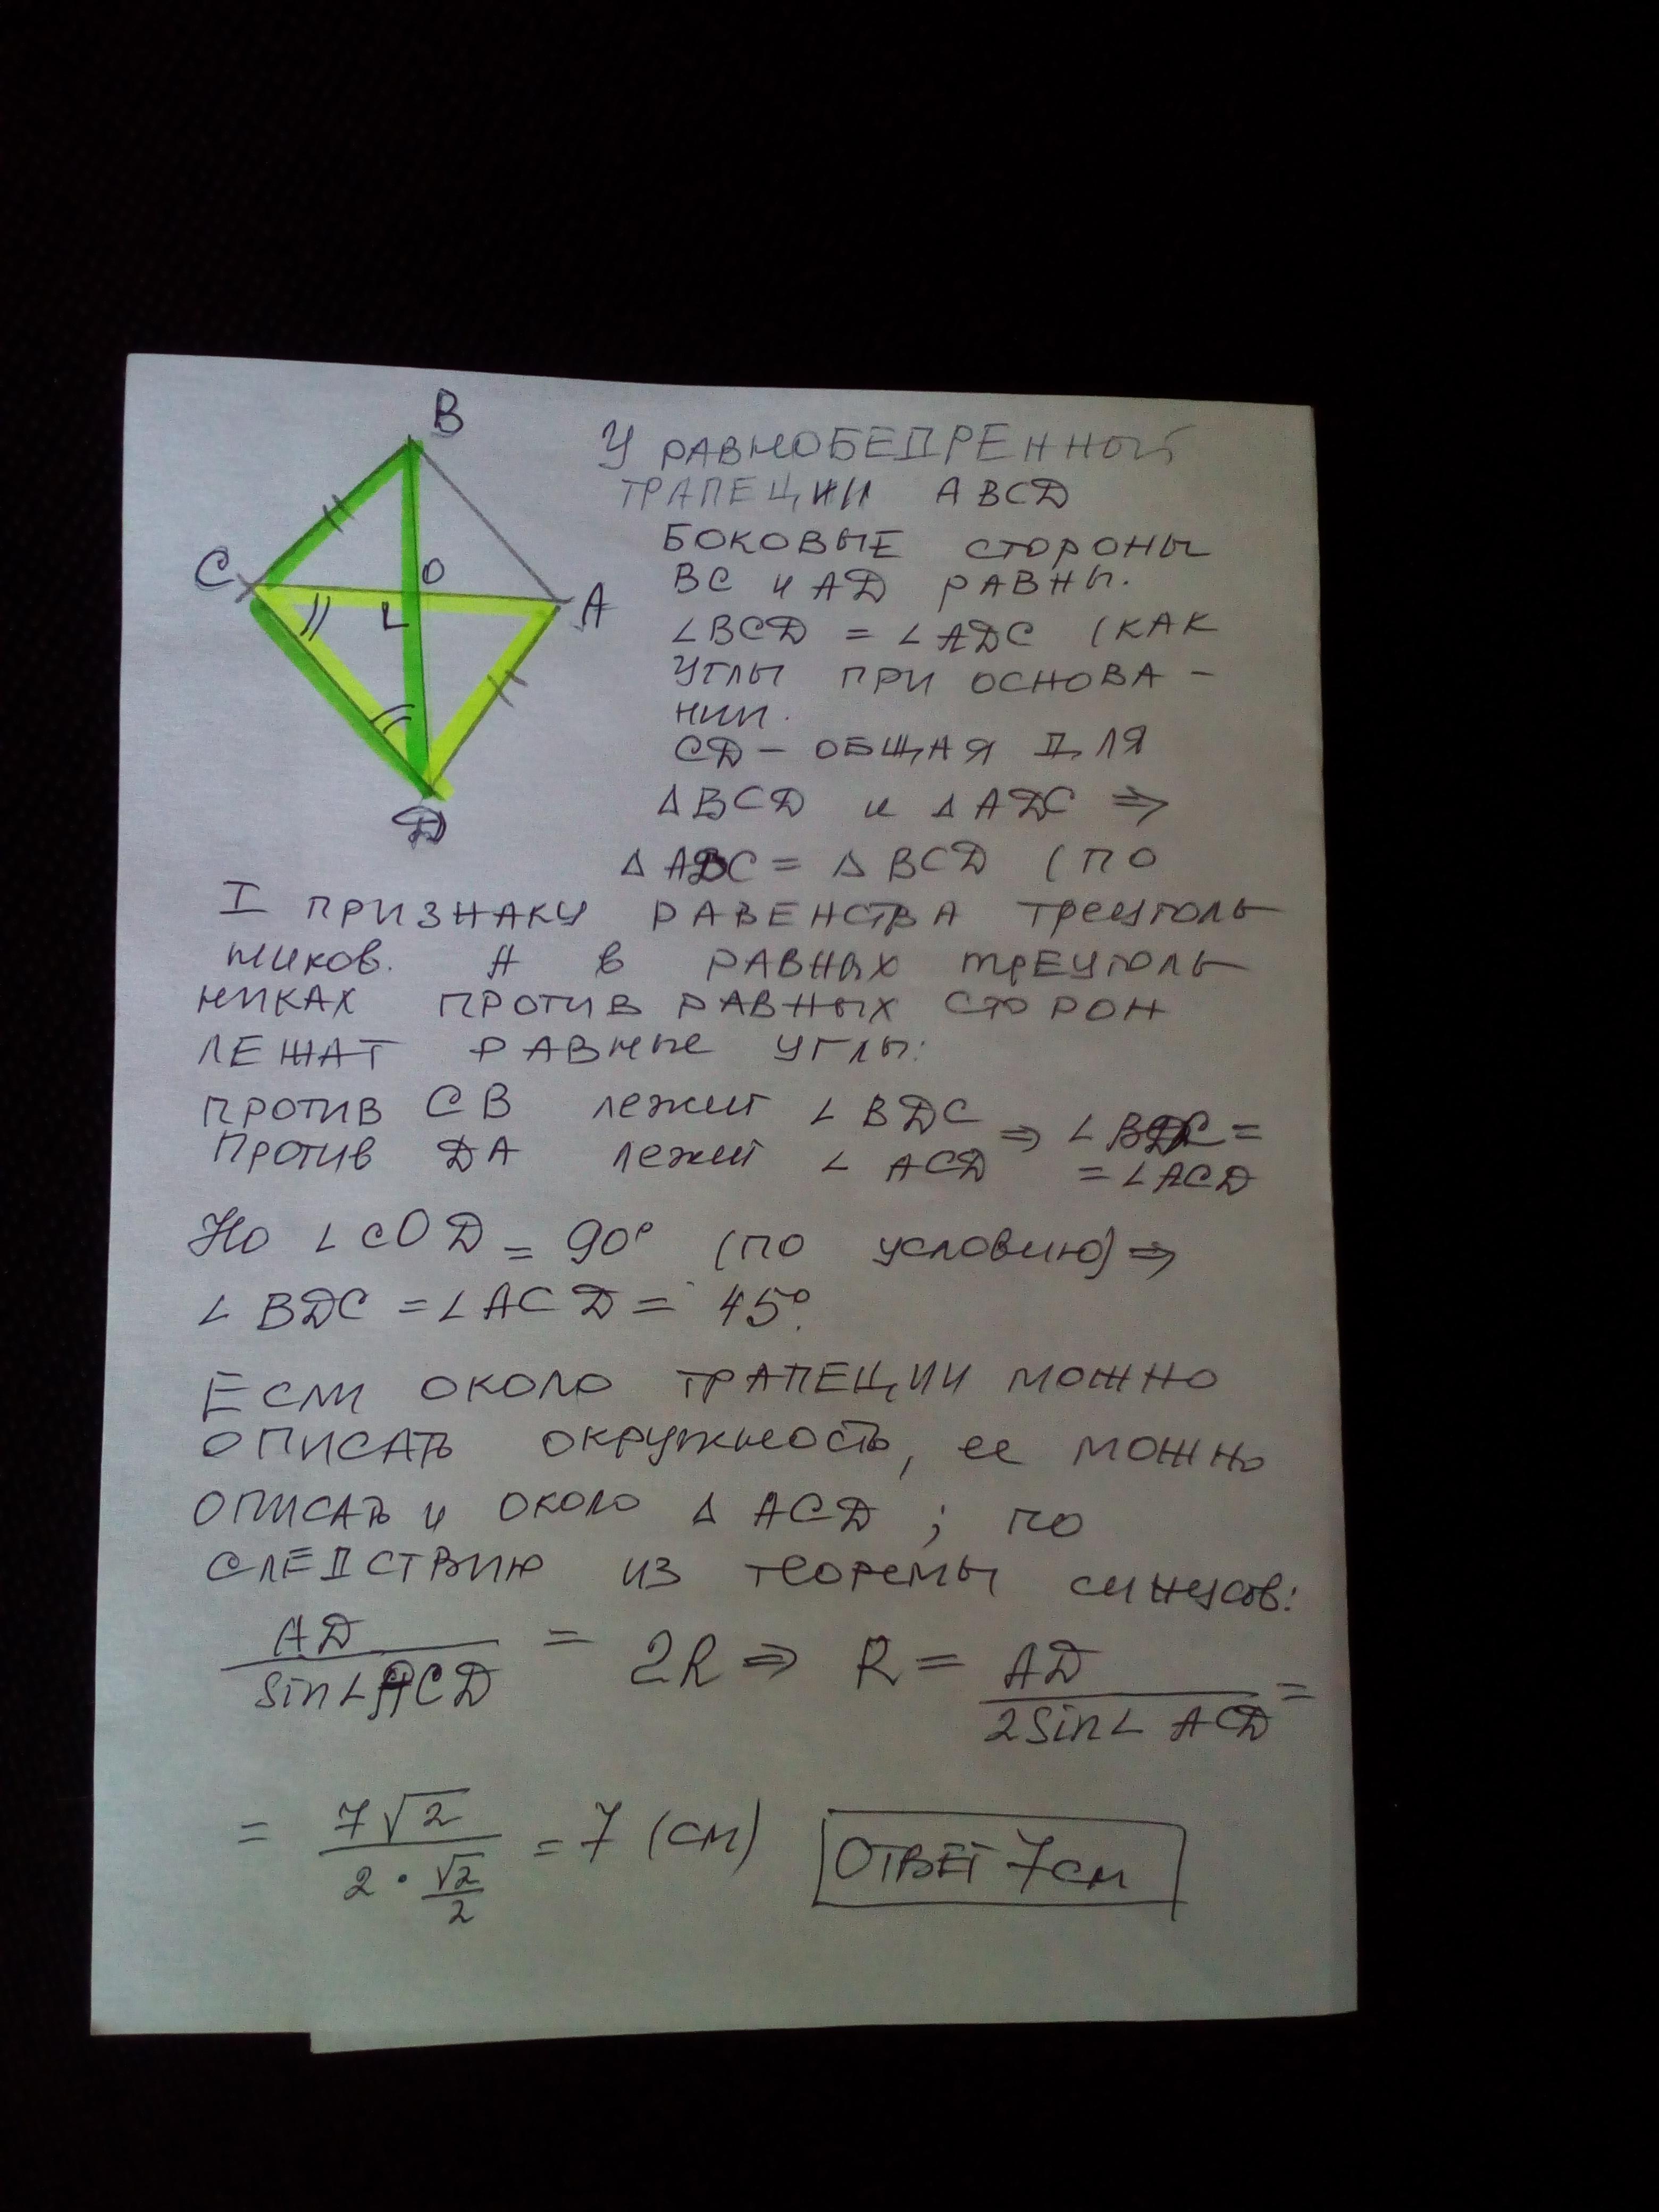 B
C
O
A
D
У РАВНОБЕДРЕННОЙ
ТРАПЕЦИИ ABCD
БОКОВЫЕ СТОРОНЫ
BC и AD РАВНЫ.
∠BCD = ∠ADC (КАК
УГЛЫ ПРИ ОСНОВА-
НИИ.
CD – ОБЩАЯ ДЛЯ
△BCD и △ADC ⇒
△ ADC = △ BCD (ПО
I ПРИЗНАКУ РАВЕНСТВА ТРЕУГОЛЬ
НИКОВ. А В РАВНЫХ ТРЕУГОЛЬ
НИКАХ ПРОТИВ РАВНЫХ СТОРОН
ЛЕЖАТ РАВНЫЕ УГЛЫ:
ПРОТИВ CB лежит ∠BDC ⇒ ∠BDC =
Против DA лежит ∠ ACD = ∠ACD
Но ∠COD = 90° (по условию) ⇒
∠ BDC = ∠ACD = 45°.
ЕСЛИ ОКОЛО ТРАПЕЦИИ МОЖНО
ОПИСАТЬ ОКРУЖНОСТЬ, ее МОЖНО
ОПИСАТЬ и ОКОЛО △ ACD ; ПО
СЛЕДСТВИЮ ИЗ теоремы синусов:
AD/sin∠ACD = 2R ⇒ R = AD/2sin∠ ACD =
= 7√2/2·√2/2 = 7 (см) ОТВЕТ 7см